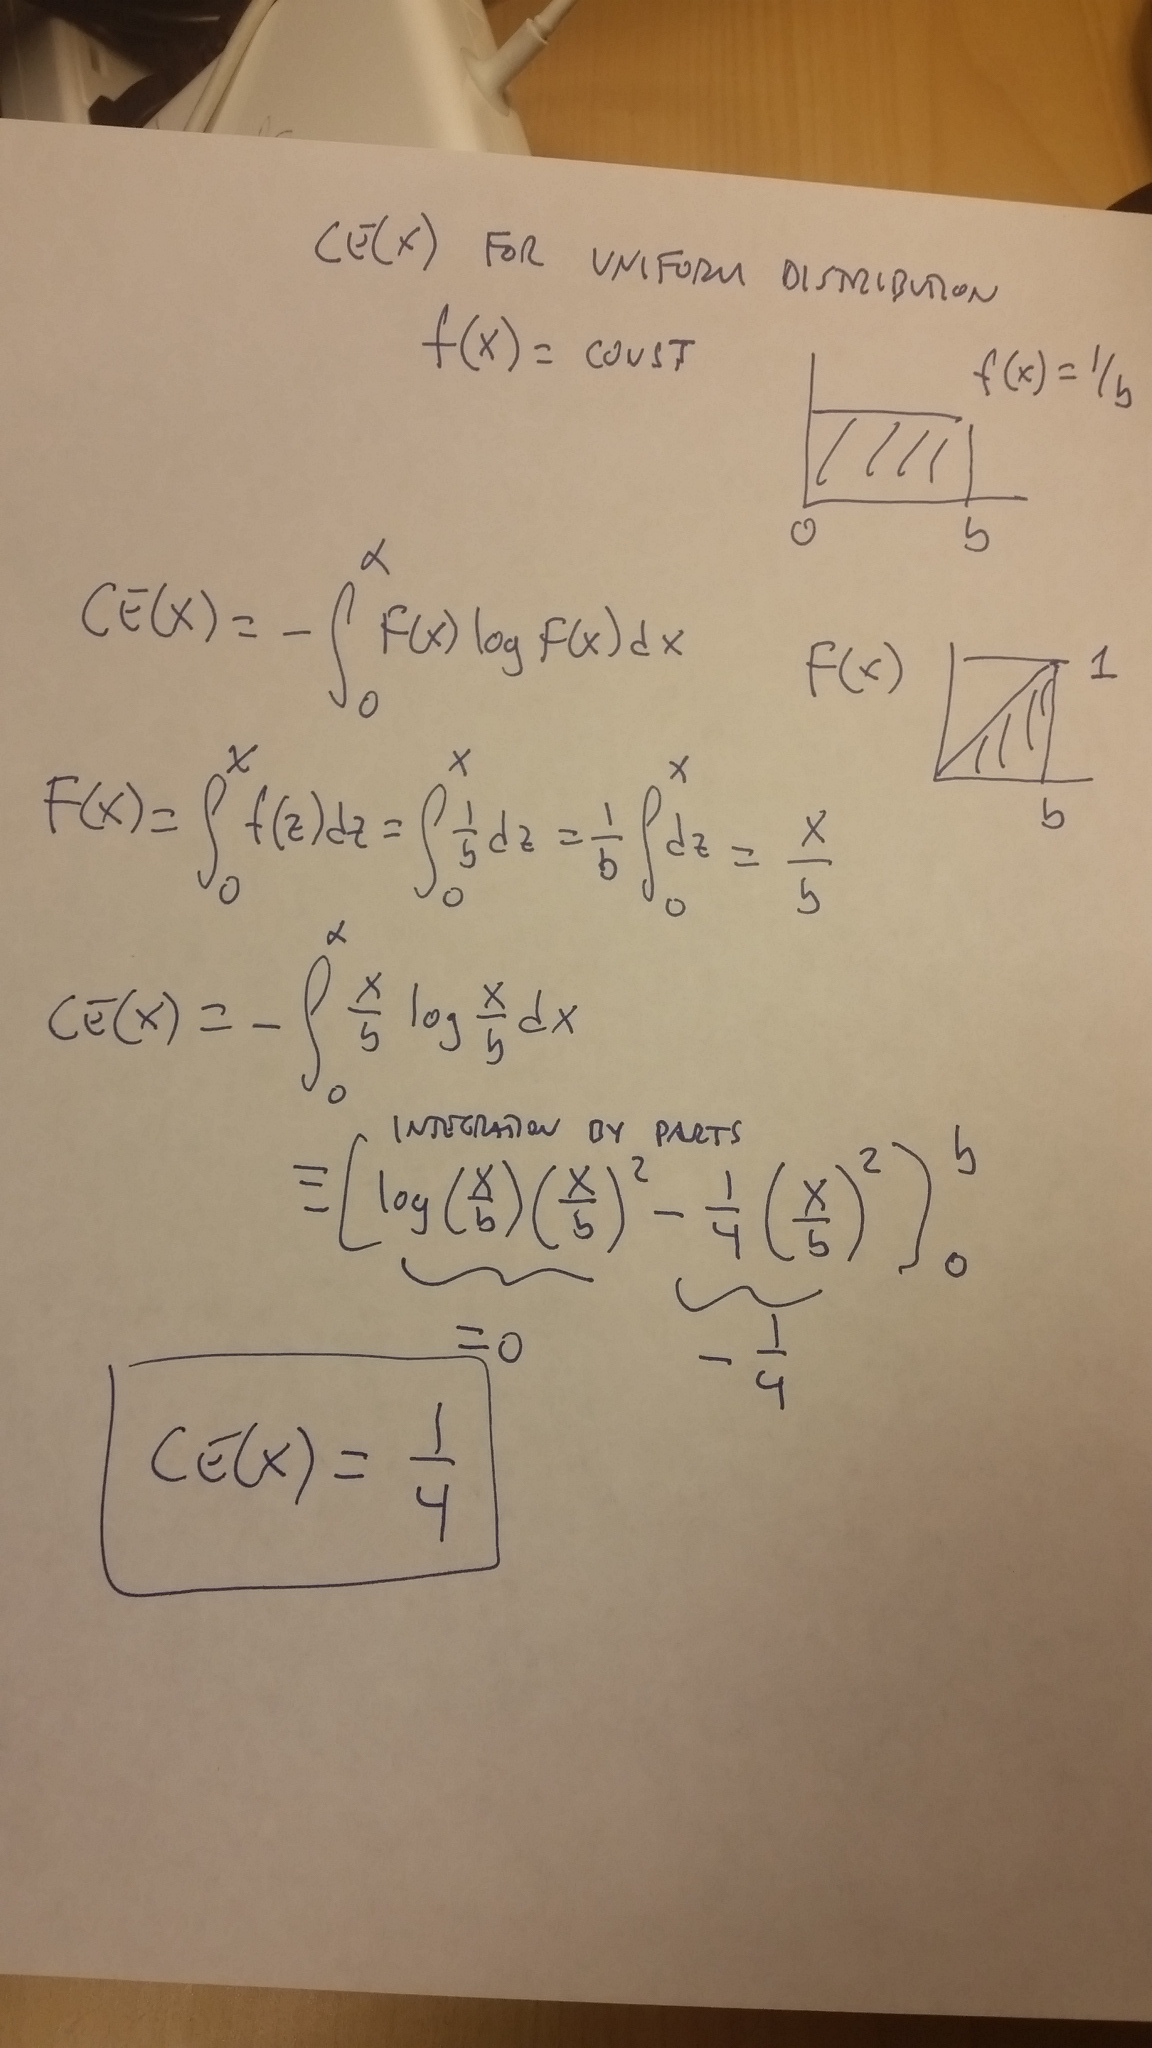 CE(X) FOR UNIFORM DISTRIBUTION
f(x) = CONST
f(x) = 1/b
0 b
CE(X) = - ∫₀^α F(x) log F(x) dx
F(x) 1
b
F(x) = ∫₀^x f(z)dz = ∫₀^x 1/b dz = 1/b ∫₀^x dz = x/b
CE(X) = - ∫₀^α x/b log x/b dx
INTEGRATION BY PARTS
≡ [log(x/b)(x/b)² - 1/4 (x/b)²]₀^b
=0 - 1/4
CE(X) = 1/4